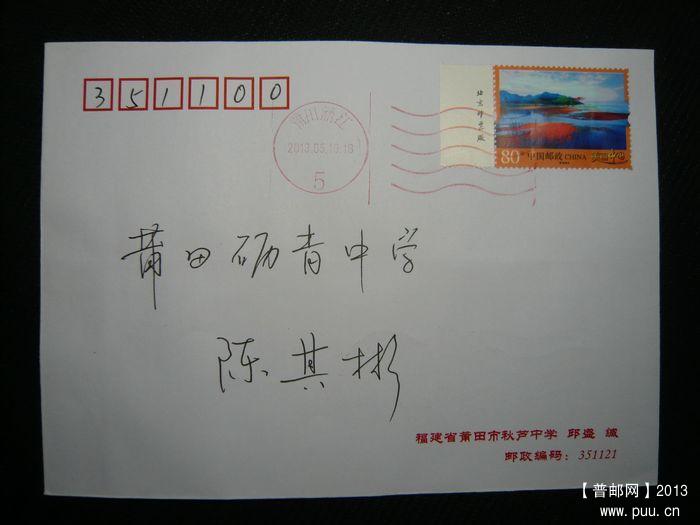 351100
北京邮票厂
莆田涵江
2013.05.13.16
5
80 中国邮政 CHINA
莆田砺青中学
陈其彬
福建省莆田市秋芦中学 邱盛 缄
邮政编码：351121
【普邮网】2013
www.puu.cn